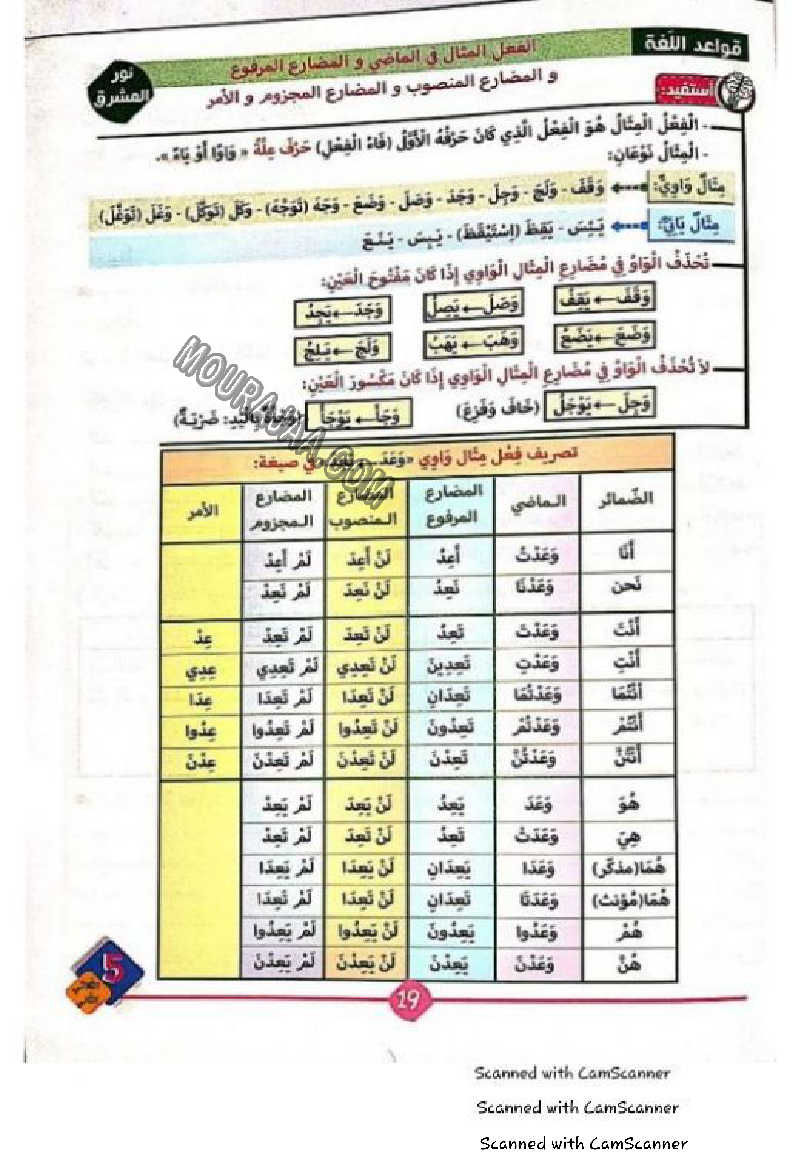 قواعد اللّغة
الفعل المثال في الماضي و المضارع المرفوع
و المضارع المنصوب و المضارع المجزوم و الأمر
نور
المشرق
أستفيد:
- الْفِعْلُ الْمِثَالُ هُوَ الْفِعْلُ الَّذِي كَانَ حَرْفُهُ الْأَوَّلُ (فَاءُ الْفِعْلِ) حَرْفَ عِلَّةٍ « وَاوًا أَوْ يَاءً ».
- الْمِثَالُ نَوْعَانِ:
مِثَالٌ وَاوِيٌّ: وَقَفَ - وَلَجَ - وَجِلَ - وَجَدَ - وَصَلَ - وَضَعَ - وَجَهَ (تَوَجَّهَ) - وَكَلَ (تَوَكَّلَ) - وَغَلَ (تَوَغَّلَ)
مِثَالٌ يَائِيٌّ: يَئِسَ - يَقِظَ (اِسْتَيْقَظَ) - يَبِسَ - يَنَعَ
تُحْذَفُ الْوَاوُ فِي مُضَارِعِ الْمِثَالِ الْوَاوِي إِذَا كَانَ مَفْتُوحَ الْعَيْنِ:
وَقَفَ ← يَقِفُ وَصَلَ ← يَصِلُ وَجَدَ ← يَجِدُ
وَضَعَ ← يَضَعُ وَهَبَ ← يَهَبُ وَلَجَ ← يَلِجُ
لاَ تُحْذَفُ الْوَاوُ فِي مُضَارِعِ الْمِثَالِ الْوَاوِي إِذَا كَانَ مَكْسُورَ الْعَيْنِ:
وَجِلَ ← يَوْجَلُ (خَافَ وَفَزِعَ) وَجَأَ ← يَوْجَأُ (وَجَأَهُ بِالْيَدِ: ضَرَبَهُ)
MOURAJAA.COM
تصريف فِعْل مِثَال وَاوِي «وَعَدَ ← يَعِدُ» في صيغة:
الضّمائر الـماضي المضارع المرفوع المضارع المنصوب المضارع المـجزوم الأمر
أَنَا وَعَدْتُ أَعِدُ لَنْ أَعِدَ لَمْ أَعِدْ
نَحن وَعَدْنَا نَعِدُ لَنْ نَعِدَ لَمْ نَعِدْ
أَنْتَ وَعَدْتَ تَعِدُ لَنْ تَعِدَ لَمْ تَعِدْ عِدْ
أَنْتِ وَعَدْتِ تَعِدِينَ لَنْ تَعِدِي لَمْ تَعِدِي عِدِي
أَنْتُمَا وَعَدْتُمَا تَعِدَانِ لَنْ تَعِدَا لَمْ تَعِدَا عِدَا
أَنْتُمْ وَعَدْتُمْ تَعِدُونَ لَنْ تَعِدُوا لَمْ تَعِدُوا عِدُوا
أَنْتُنَّ وَعَدْتُنَّ تَعِدْنَ لَنْ تَعِدْنَ لَمْ تَعِدْنَ عِدْنَ
هُوَ وَعَدَ يَعِدُ لَنْ يَعِدَ لَمْ يَعِدْ
هِيَ وَعَدَتْ تَعِدُ لَنْ تَعِدَ لَمْ تَعِدْ
هُمَا(مذكّر) وَعَدَا يَعِدَانِ لَنْ يَعِدَا لَمْ يَعِدَا
هُمَا(مُؤنث) وَعَدَتَا تَعِدَانِ لَنْ تَعِدَا لَمْ تَعِدَا
هُمْ وَعَدُوا يَعِدُونَ لَنْ يَعِدُوا لَمْ يَعِدُوا
هُنَّ وَعَدْنَ يَعِدْنَ لَنْ يَعِدْنَ لَمْ يَعِدْنَ
5
19
Scanned with CamScanner
Scanned with CamScanner
Scanned with CamScanner